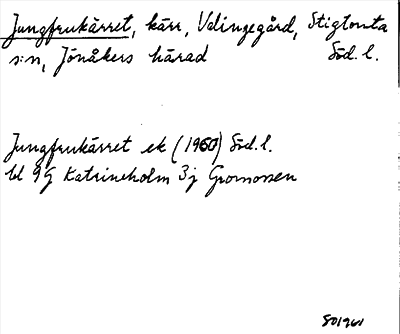 Jungfrukärret, kärr, Valingegård, Stigtomta
s:n, Jönåkers härad Söd. l.
Jungfrukärret ek (1960) Söd. l.
bl 9G Katrineholm 3j Gromossen
801961